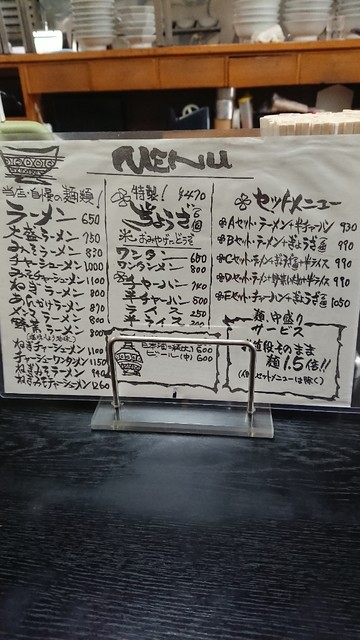 MENU
当店・自慢の麺類!
ラーメン 650
大盛ラーメン 750
みそラーメン 850
チャーシューメン 1000
みそチャーシューメン 1100
ねぎラーメン 800
ラーメン 800
メンマラーメン 800
野菜ラーメン
ねぎチャーシューメン 1150
チャーシューワンタンメン 1150
ねぎみそラーメン
ねぎみそチャーシューメン 1260
特製! ¥470
ぎょうざ 6個
※おみやげにどうぞ
ワンタン 600
ワンタンメン 800
チャーハン
半チャーハン 500
ライス 250
半ライス
ビール(中) 600
セットメニュー
Aセット・ラーメン+半チャーハン 930
Bセット・ラーメン+ぎょうざ 990
Cセット・ラーメン 半ライス 990
半ライス 990
Eセット・チャーハン+ぎょうざ 1050
麺、中盛り
サービス
値段そのまま
麺 1.5倍!!
(セットメニューは除く)